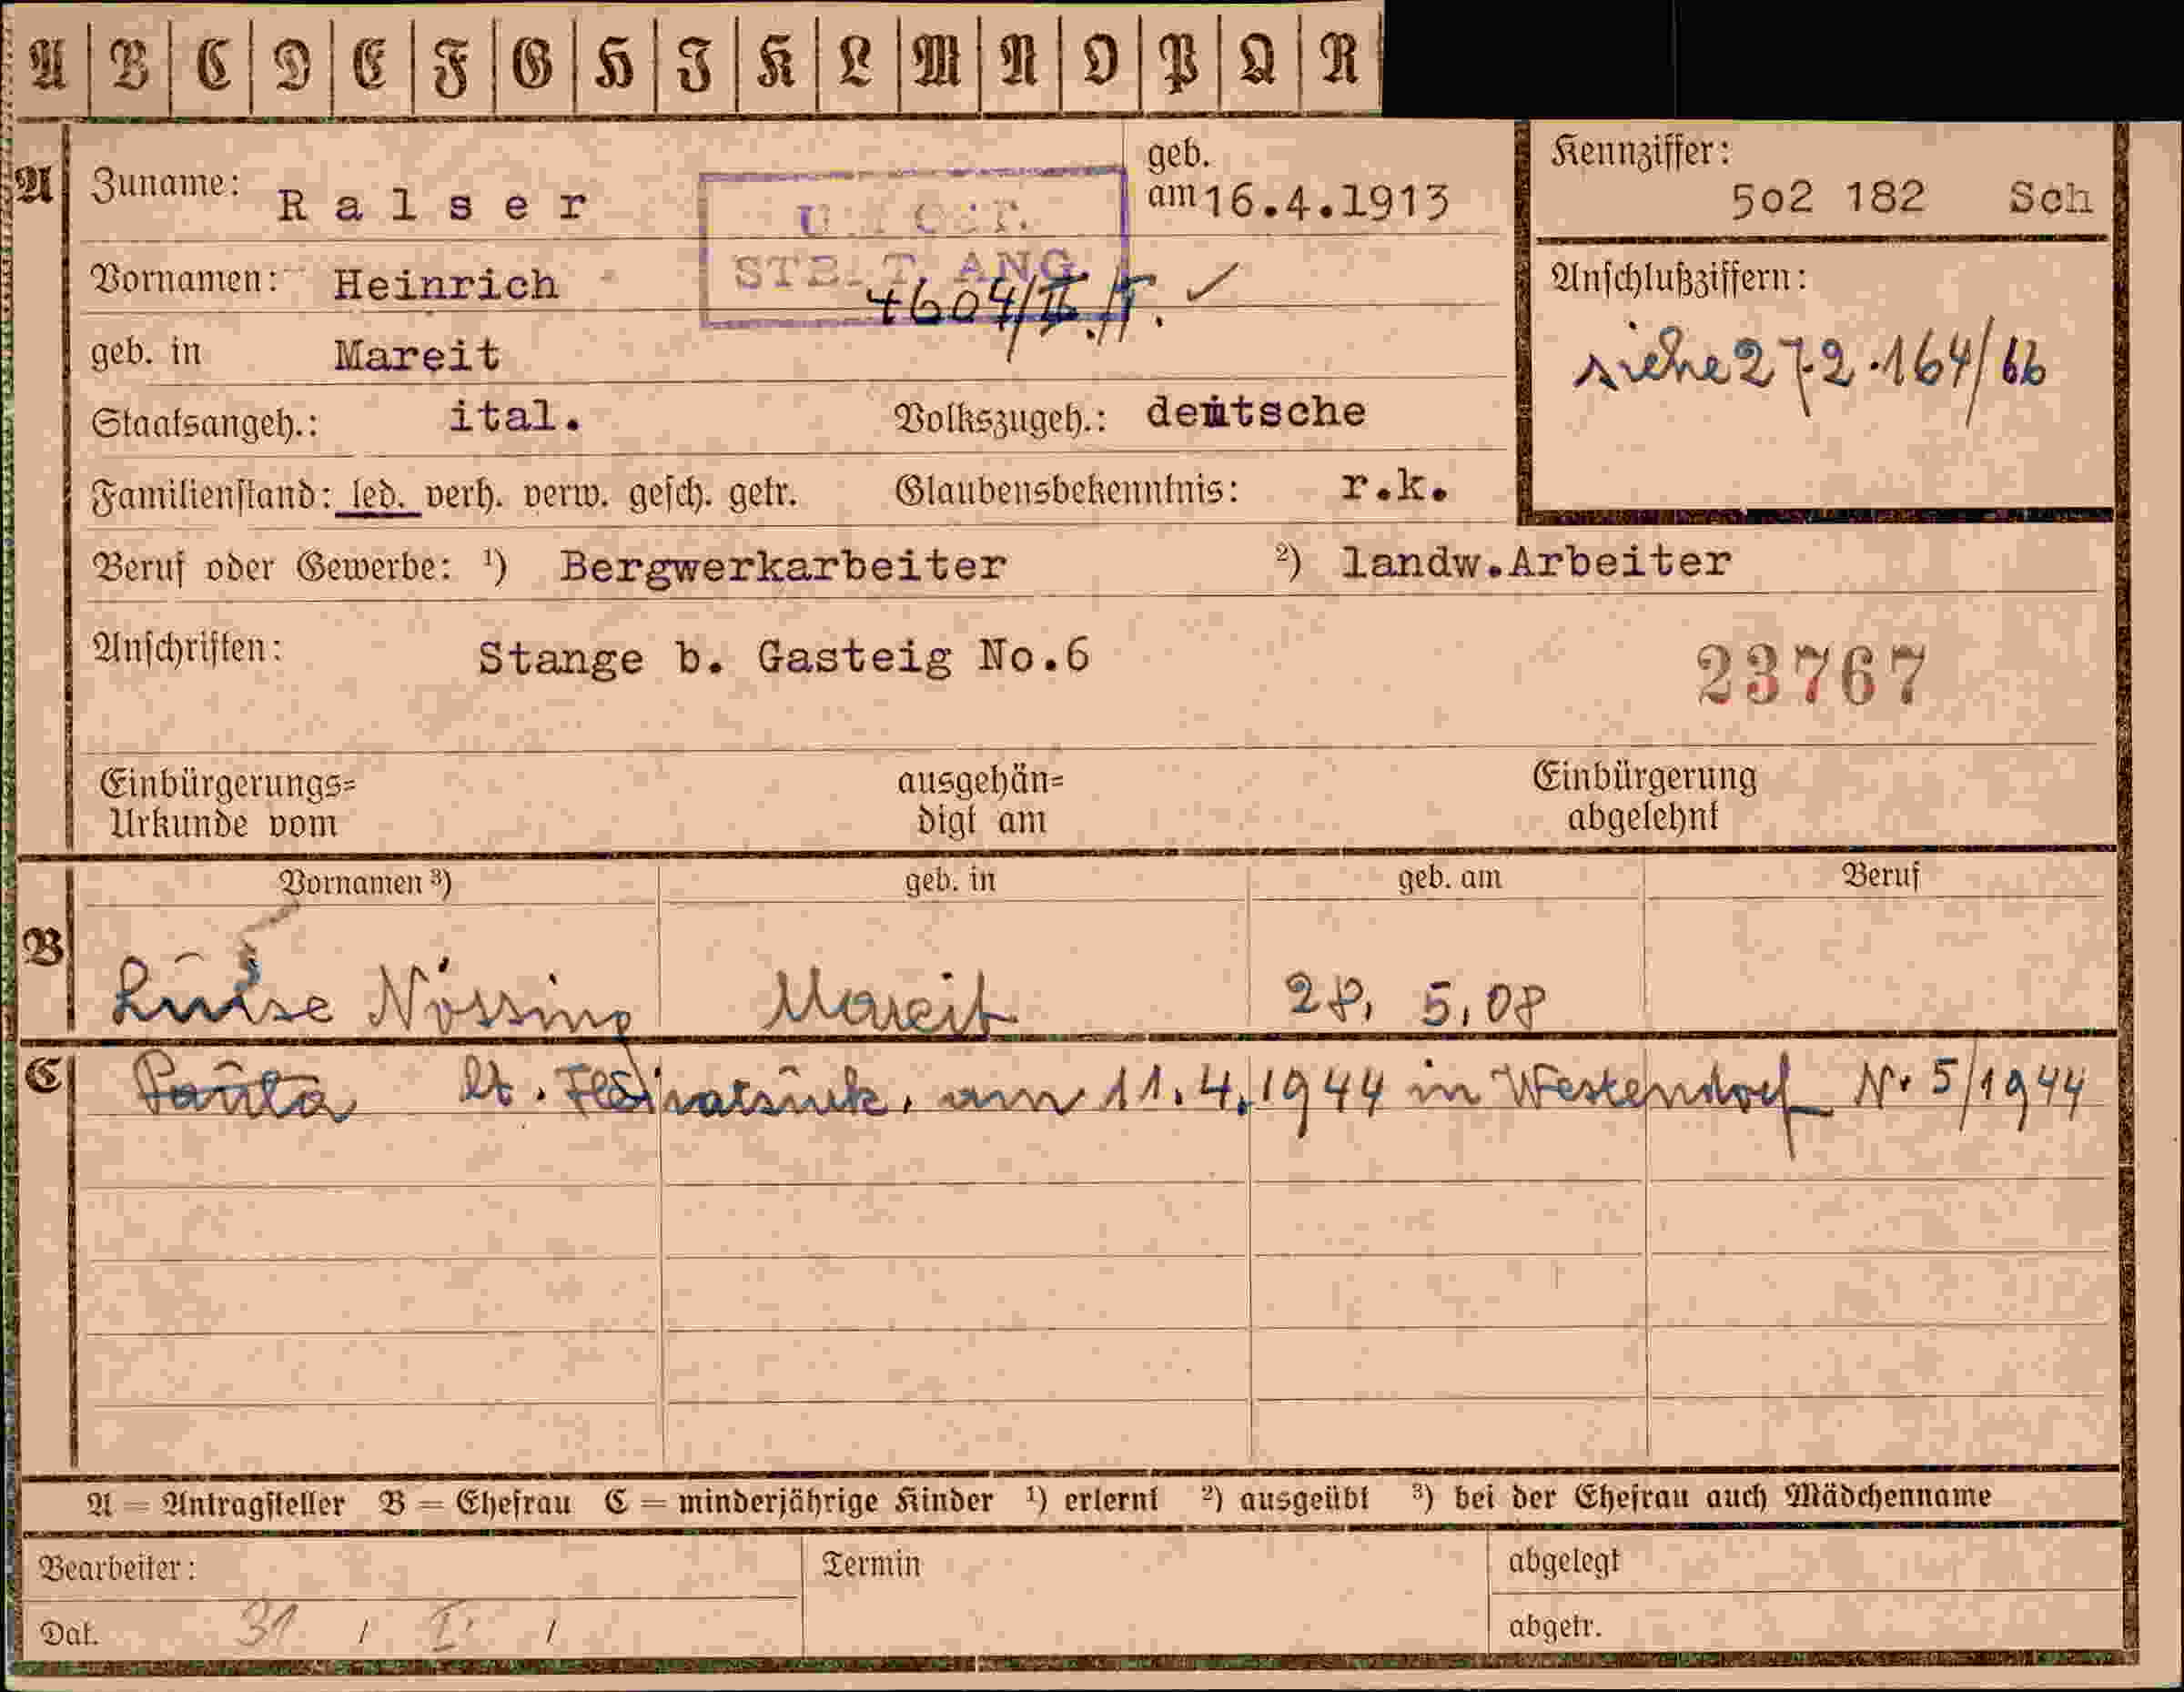 A B C D E F G H I K L M N O P Q R
A Zuname: Ralser geb. am 16.4.1913
Kennziffer: 502 182 Sch
Vornamen: Heinrich
4604/II./T. ✓
Anschlußziffern:
siehe 272.164/66
geb. in Mareit
Staatsangeh.: ital. Volkszugeh.: deutsche
Familienstand: led. verh. verw. gesch. getr. Glaubensbekenntnis: r.k.
Beruf oder Gewerbe: ¹) Bergwerkarbeiter ²) landw.Arbeiter
Anschriften: Stange b. Gasteig No.6
23767
Einbürgerungs= ausgehän= Einbürgerung
Urkunde vom digt am abgelehnt
Vornamen ³) geb. in geb. am Beruf
B Luise Nössing Mareit 28, 5,08
C Paula lt. am 11.4.1944 in Westendorf Nr 5/1944
A = Antragsteller B = Ehefrau C = minderjährige Kinder ¹) erlernt ²) ausgeübt ³) bei der Ehefrau auch Mädchenname
Bearbeiter: Termin abgelegt
Dat. 31 / I / abgetr.